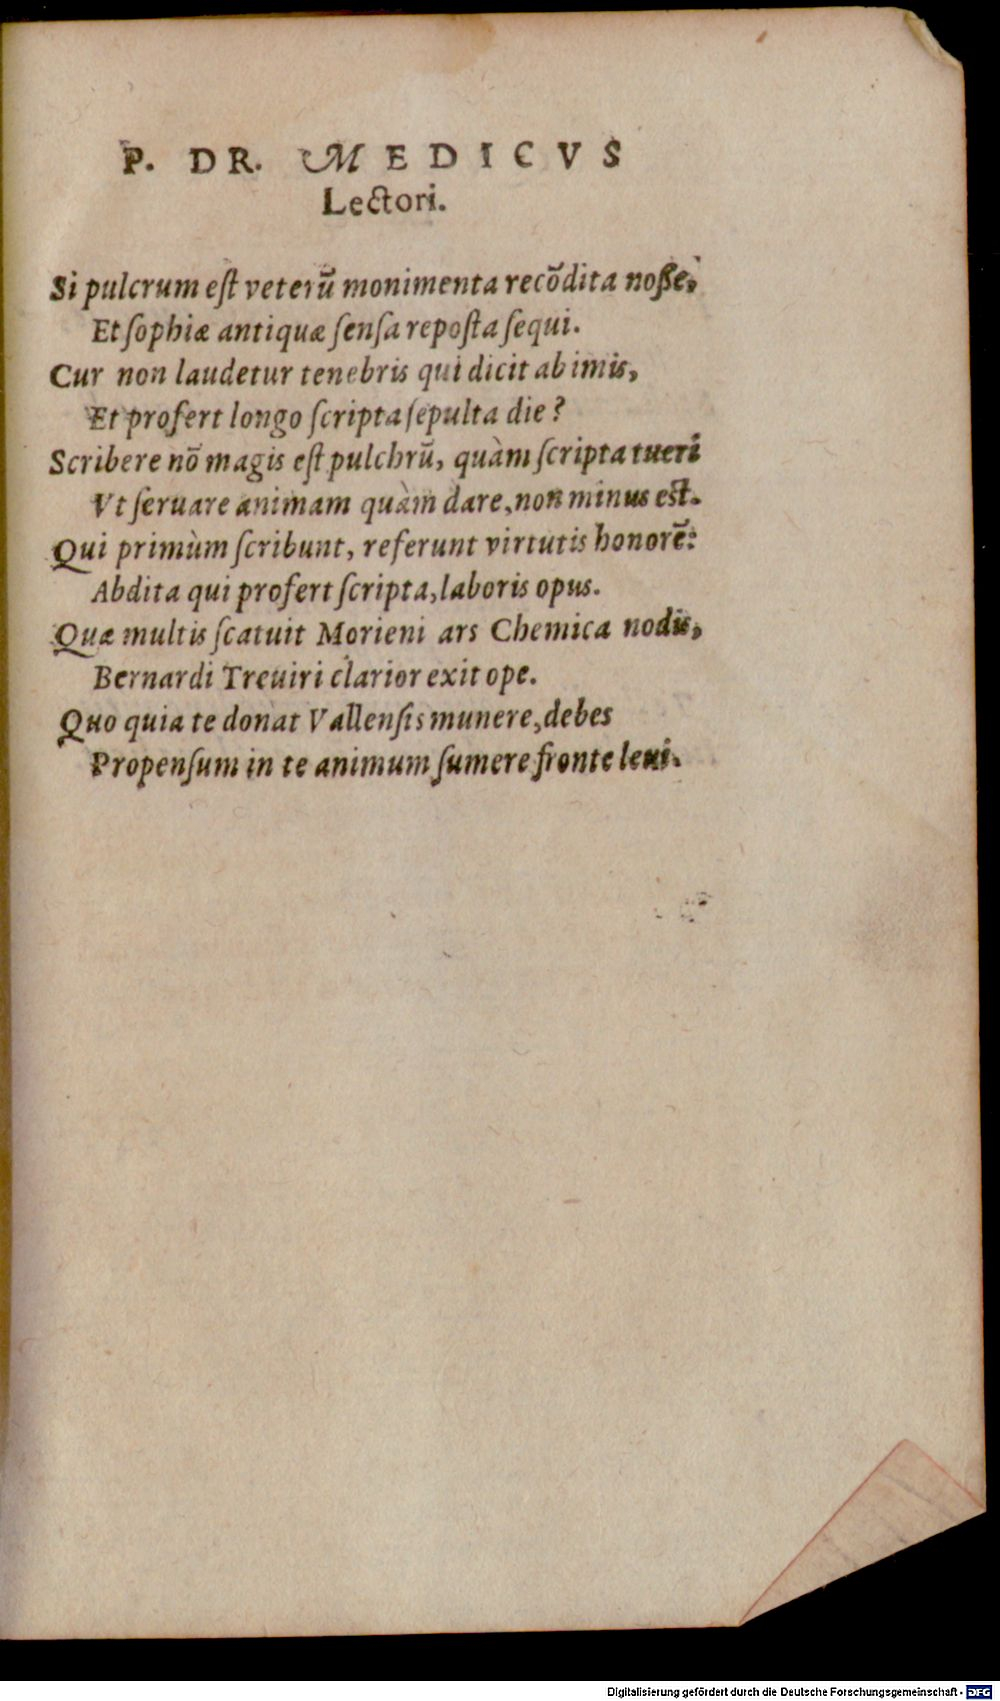 P. DR. MEDICVS
Lectori.
Si pulcrum eſt veterũ monimenta recõdita noſſe,
Et ſophiæ antiquæ ſenſa repoſta ſequi.
Cur non laudetur tenebris qui dicit ab imis,
Et profert longo ſcripta ſepulta die?
Scribere nõ magis eſt pulchrũ, quàm ſcripta tueri
Vt ſeruare animam quàm dare, non minus eſt.
Qui primùm ſcribunt, referunt virtutis honorẽ:
Abdita qui profert ſcripta, laboris opus.
Quæ multis ſcatuit Morieni ars Chemica nodis,
Bernardi Treuiri clarior exit ope.
Quo quia te donat Vallenſis munere, debes
Propenſum in te animum ſumere fronte leui.
Digitalisierung gefördert durch die Deutsche Forschungsgemeinschaft - DFG